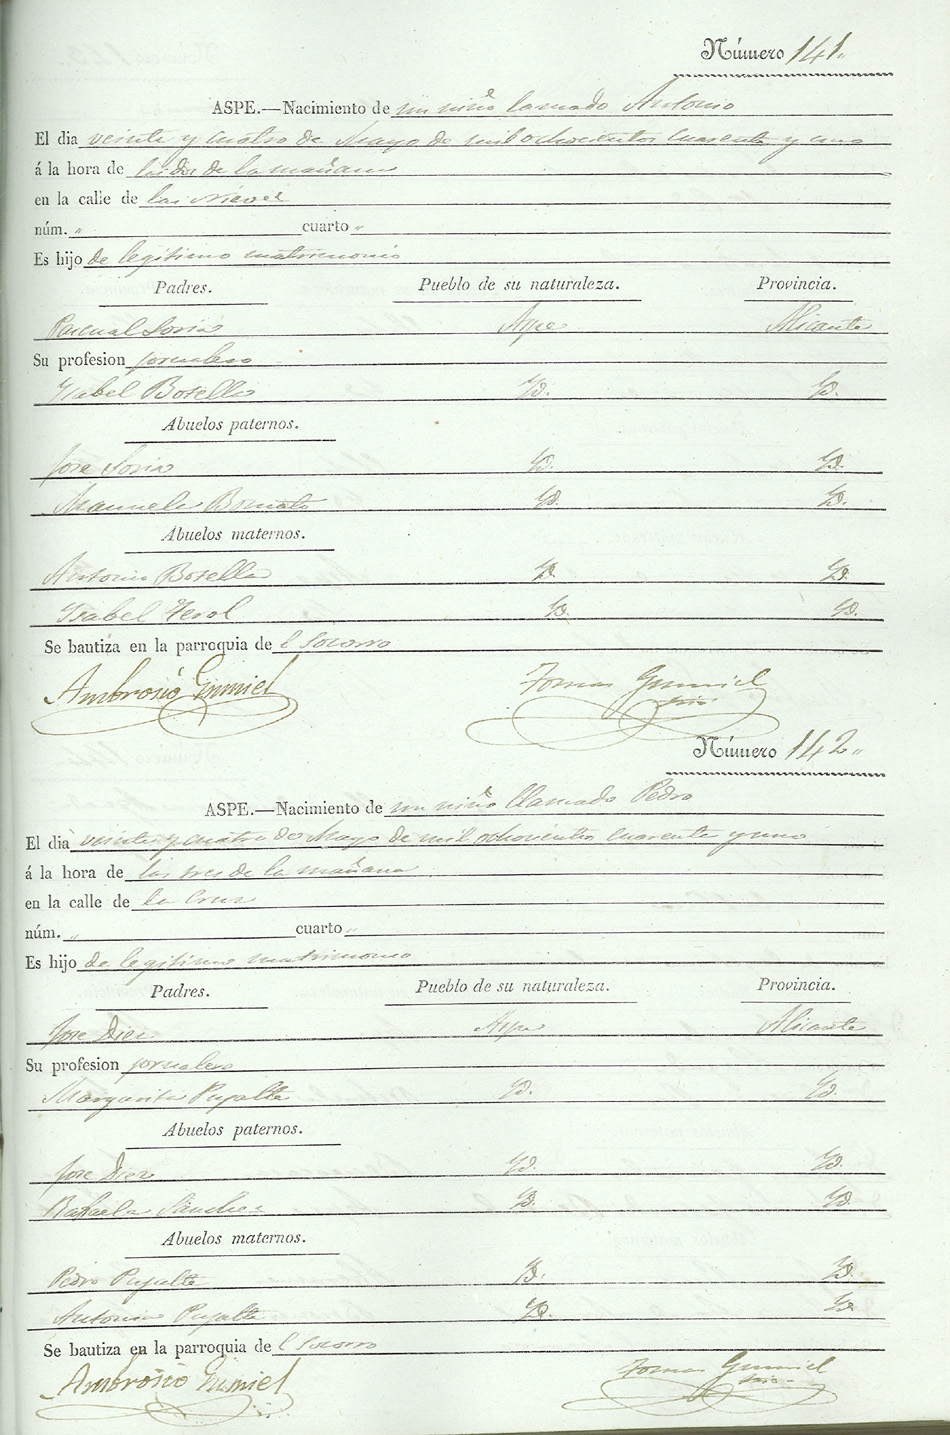 Número 141.
ASPE.—Nacimiento de un niño lamado Antonio
El dia veinte y cuatro de Mayo de mil ochocientos cuarenta y uno
á la hora de las dos de la mañana
en la calle de las Nieves
núm. " cuarto "
Es hijo de legitimo matrimonio
Padres. Pueblo de su naturaleza. Provincia.
Pascual Soria Aspe Alicante
Su profesion jornalero
Ysabel Botella Yd. Yd.
Abuelos paternos.
Jose Soria Yd. Yd.
Manuela Yd. Yd.
Abuelos maternos.
Antonio Botella Yd. Yd.
Ysabel Yd. Yd.
Se bautiza en la parroquia de l Socorro
Ambrosio Gumiel Tomas Gumiel
Número 142.
ASPE.—Nacimiento de un niño llamado Pedro
El dia veinte y cuatro de Mayo de mil ochocientos cuarenta y uno
á la hora de las tres de la mañana
en la calle de la Cruz
núm. " cuarto "
Es hijo de legitimo matrimonio
Padres. Pueblo de su naturaleza. Provincia.
Jose Diez Aspe Alicante
Su profesion jornalero
Margarita Pujalte Yd. Yd.
Abuelos paternos.
Jose Diez Yd. Yd.
Rafaela Sanchez Yd. Yd.
Abuelos maternos.
Pedro Pujalte Yd. Yd.
Antonia Pujalte Yd. Yd.
Se bautiza en la parroquia de l Socorro
Ambrosio Gumiel Tomas Gumiel